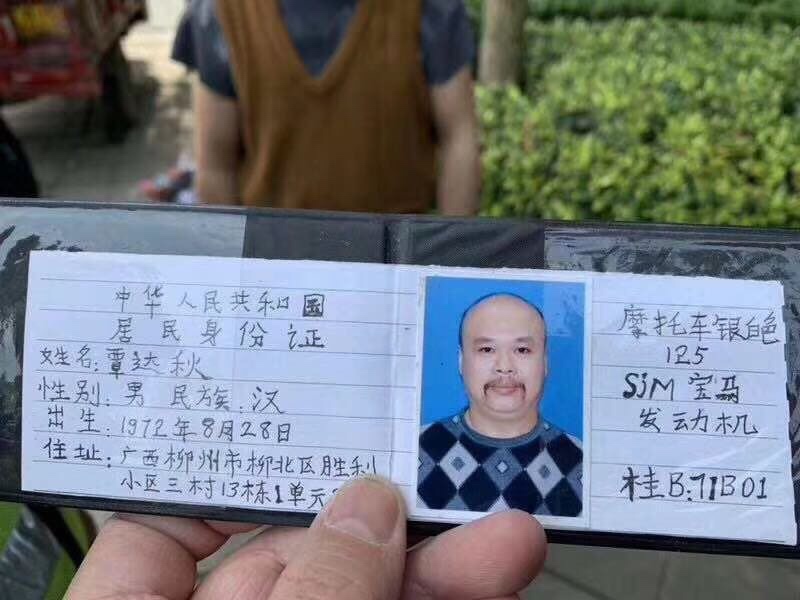 中华人民共和国
居民身份证
姓名:覃达秋
性别:男 民族:汉
出生:1972年8月28日
住址:广西柳州市柳北区胜利
小区三村13栋1单元
摩托车银白色
125
SiM 宝马
发动机
桂B:71B01